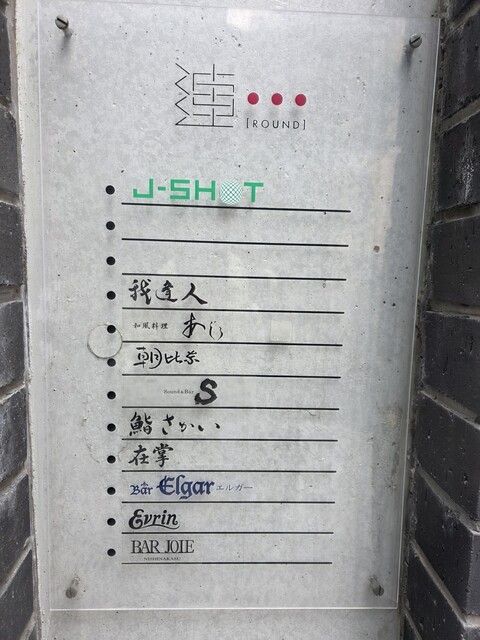 [ROUND]
J-SHOT
我達人
和風料理 あじろ
朝比奈
Sound & Bar S
鮨さかい
在掌
Bar Elgar エルガー
Evrin
BAR JOIE
NISHINAKASU